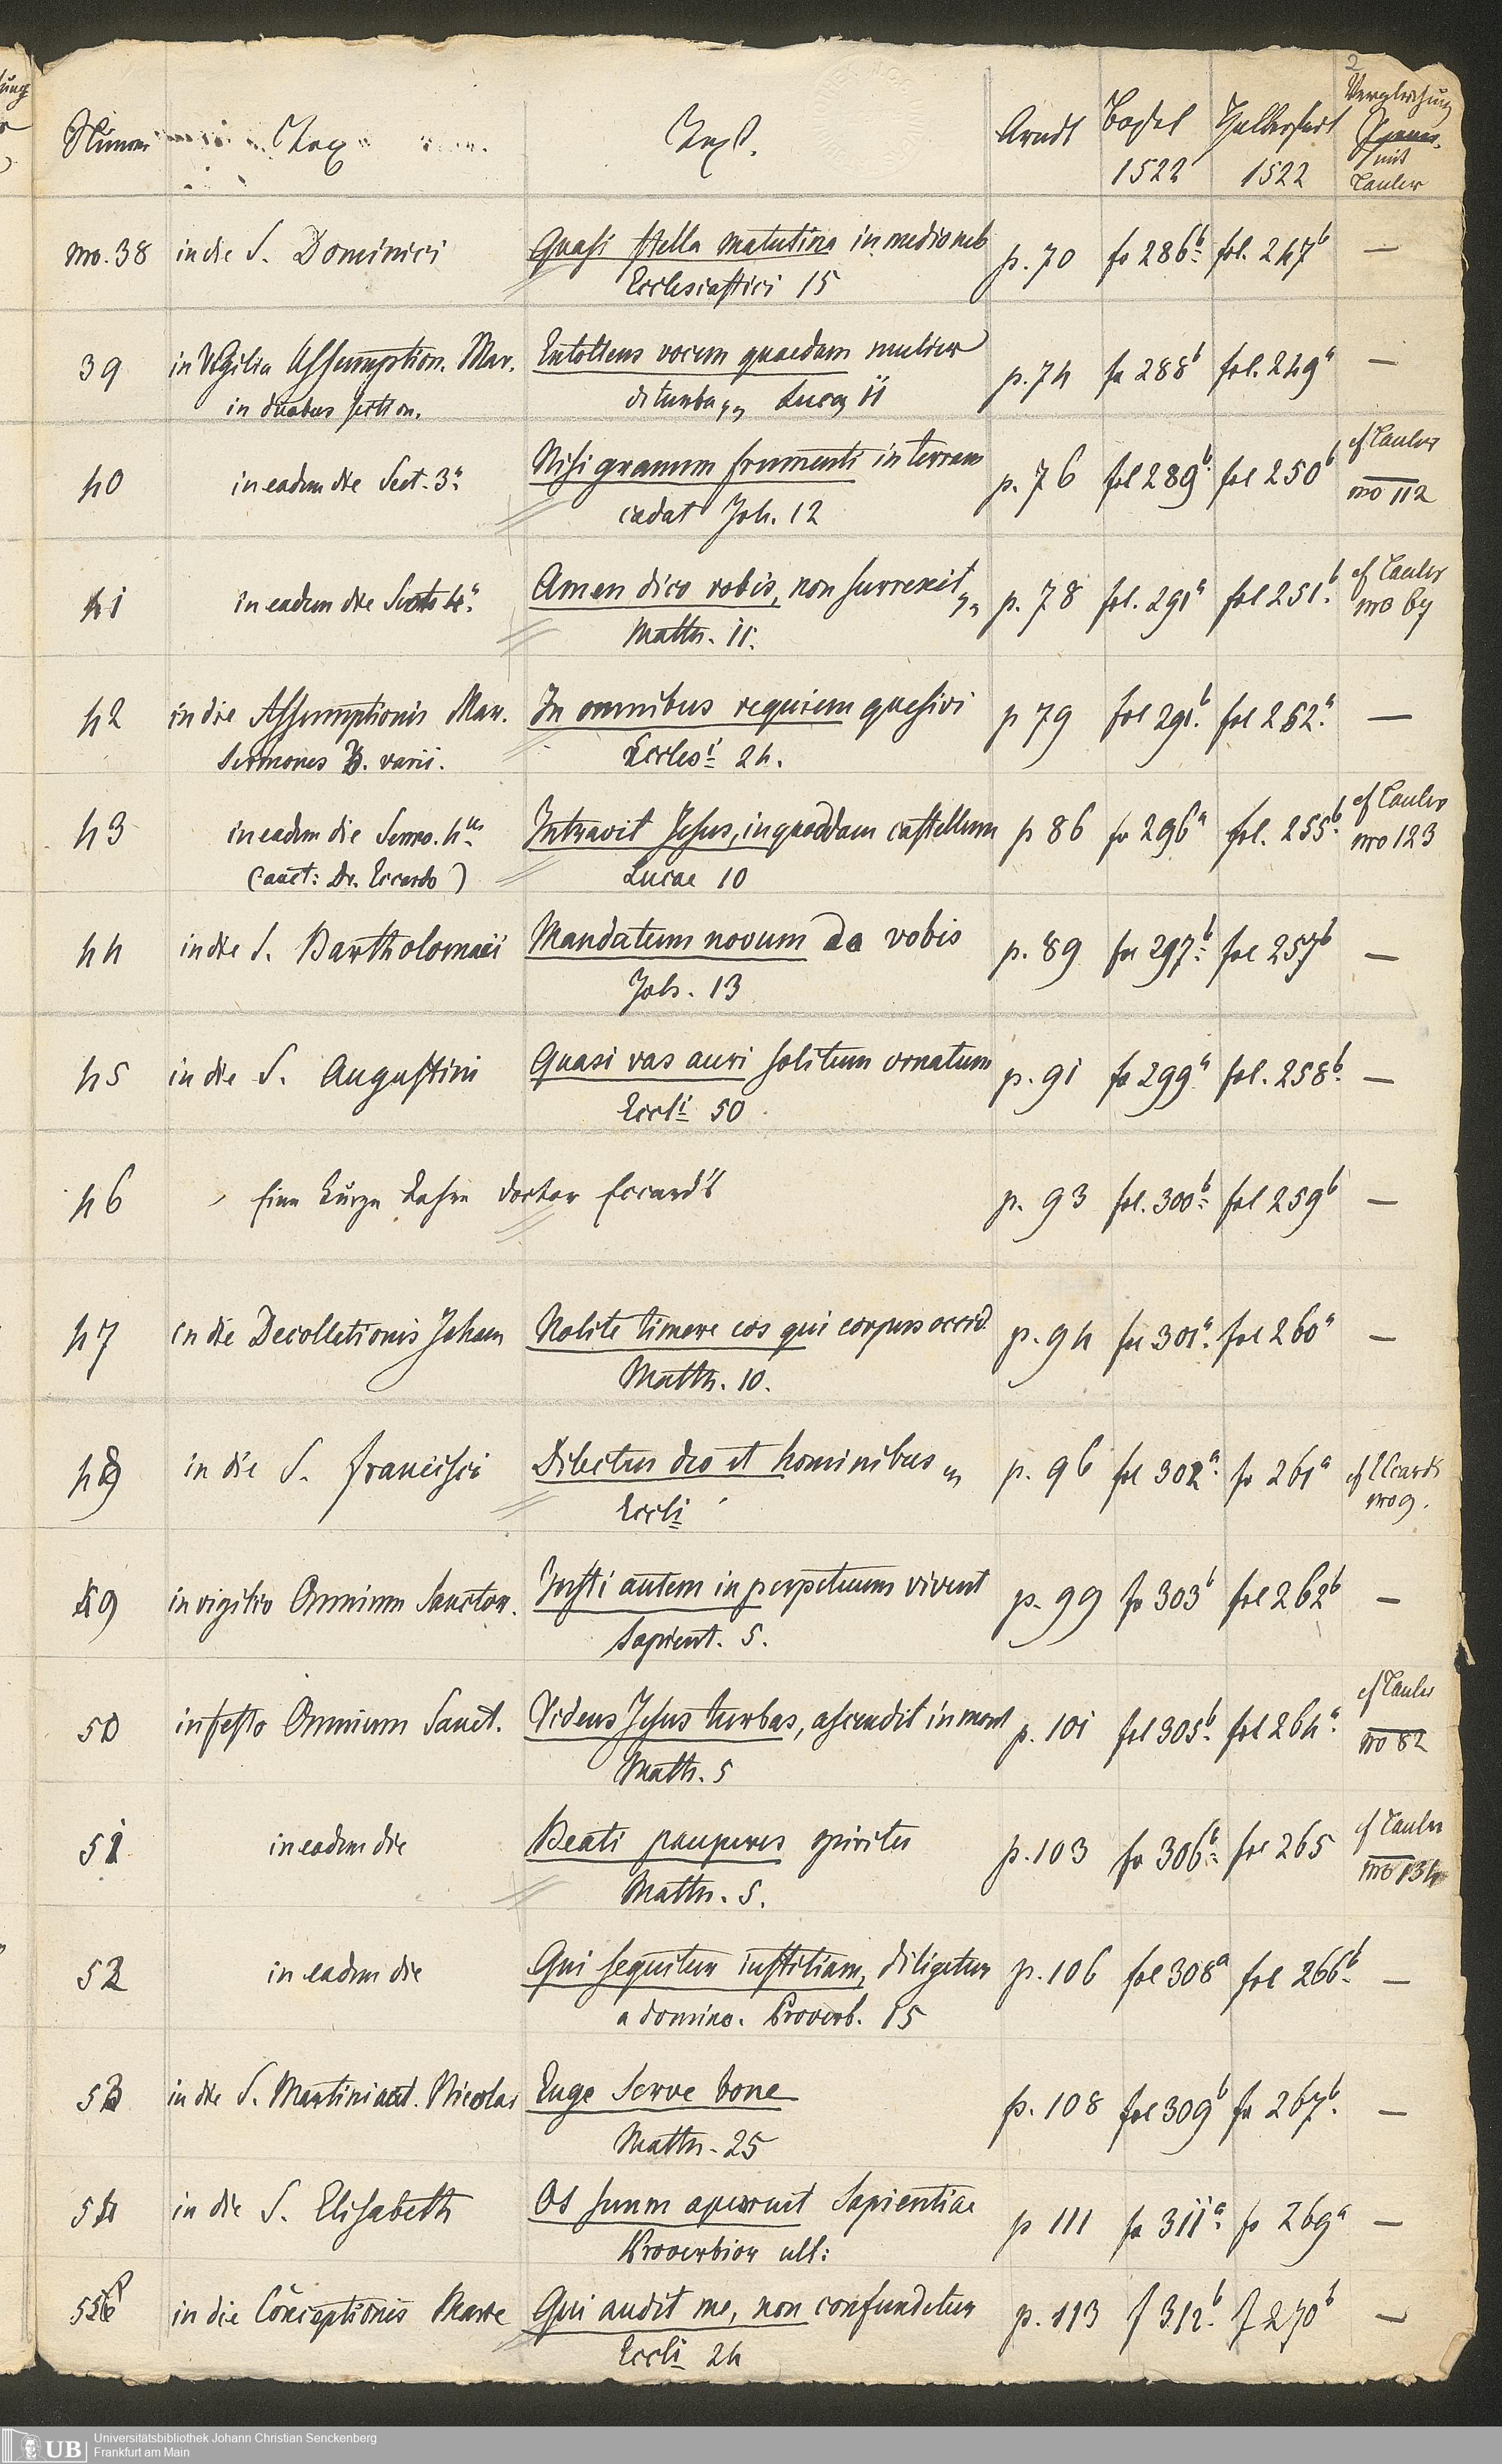 2
Numm Tag Text. Arndt Basel 1522 Halberstadt 1522 Vergleichung mit Tauler
no. 38 in die S. Dominici Quasi stella matutina in medio neb p. 70 fo 286b fol. 247b —
Ecclesiastici 15
39 in Vigilia Assumption. Mar. Extollens vocem quaedam mulier p. 74 fo 288b fol. 249a —
in duabus section. de turba Lucae 11
40 in eadem die Sect. 3a Nisi granum frumenti in terram p. 76 fol 289b fol 250b cf Tauler
cadat Joh. 12 no 112
41 in eadem die Sect 4a Amen dico vobis, non surrexit p. 78 fol. 291a fol 251b cf Tauler
Matth. 11. no 67
42 in die Assumptionis Mar. In omnibus requiem quesivi p 79 fol 291b fol 252a —
Sermones varii. Eccles 24.
43 in eadem die Sermo. 4us Intravit Jesus, in quoddam castellum p 86 fo 296a fol. 255b cf Tauler
(auct: Dr. Eccardo) Lucae 10 no 123
44 in die S. Bartholomaei Mandatum novum do vobis p. 89 fol 297b fol 257b —
Joh. 13
45 in die S. Augustini Quasi vas auri solitum ornatum p. 91 fo 299a fol. 258b —
Eccli 50
46 Eine kurze Lehre doctor Eccard's p. 93 fol. 300b fol 259b —
47 in die Decolletionis Johan Nolite timere eos qui corpus occid p. 94 fol 301a fol 260a —
Matth. 10.
48 in die S. Francisci Dilectus deo et hominibus p. 96 fol 302a fo 261a cf Eccardi
Eccli no 9.
49 in vigilio Omnium Sanctor. Justi autem in perpetuum vivent p. 99 fo 303b fol 262b —
Sapient. 5.
50 in festo Omnium Sanct. Videns Jesus turbas, ascendit in mont p. 101 fol 305b fol 264a cf Tauler
Matth. 5 no 82
51 in eadem die Beati pauperes spiritu p. 103 fo 306b fol 265 cf Tauler
Matth. 5. no 134
52 in eadem die Qui sequitur iustitiam, diligetur p. 106 fol 308a fol 266b —
a domino. Proverb. 15
53 in die S. Martini aut. Nicolai Euge Serve bone p. 108 fol 309b fo 267b —
Matth. 25
54 in die S. Elisabeth Os suum aperuit Sapientiae p 111 fo 311a fo 269a —
Proverbior ult:
55 in die Conceptionis Marie Qui audit me, non confundetur p. 113 f 312b f 270b —
Eccli 24
UB Universitätsbibliothek Johann Christian Senckenberg
Frankfurt am Main